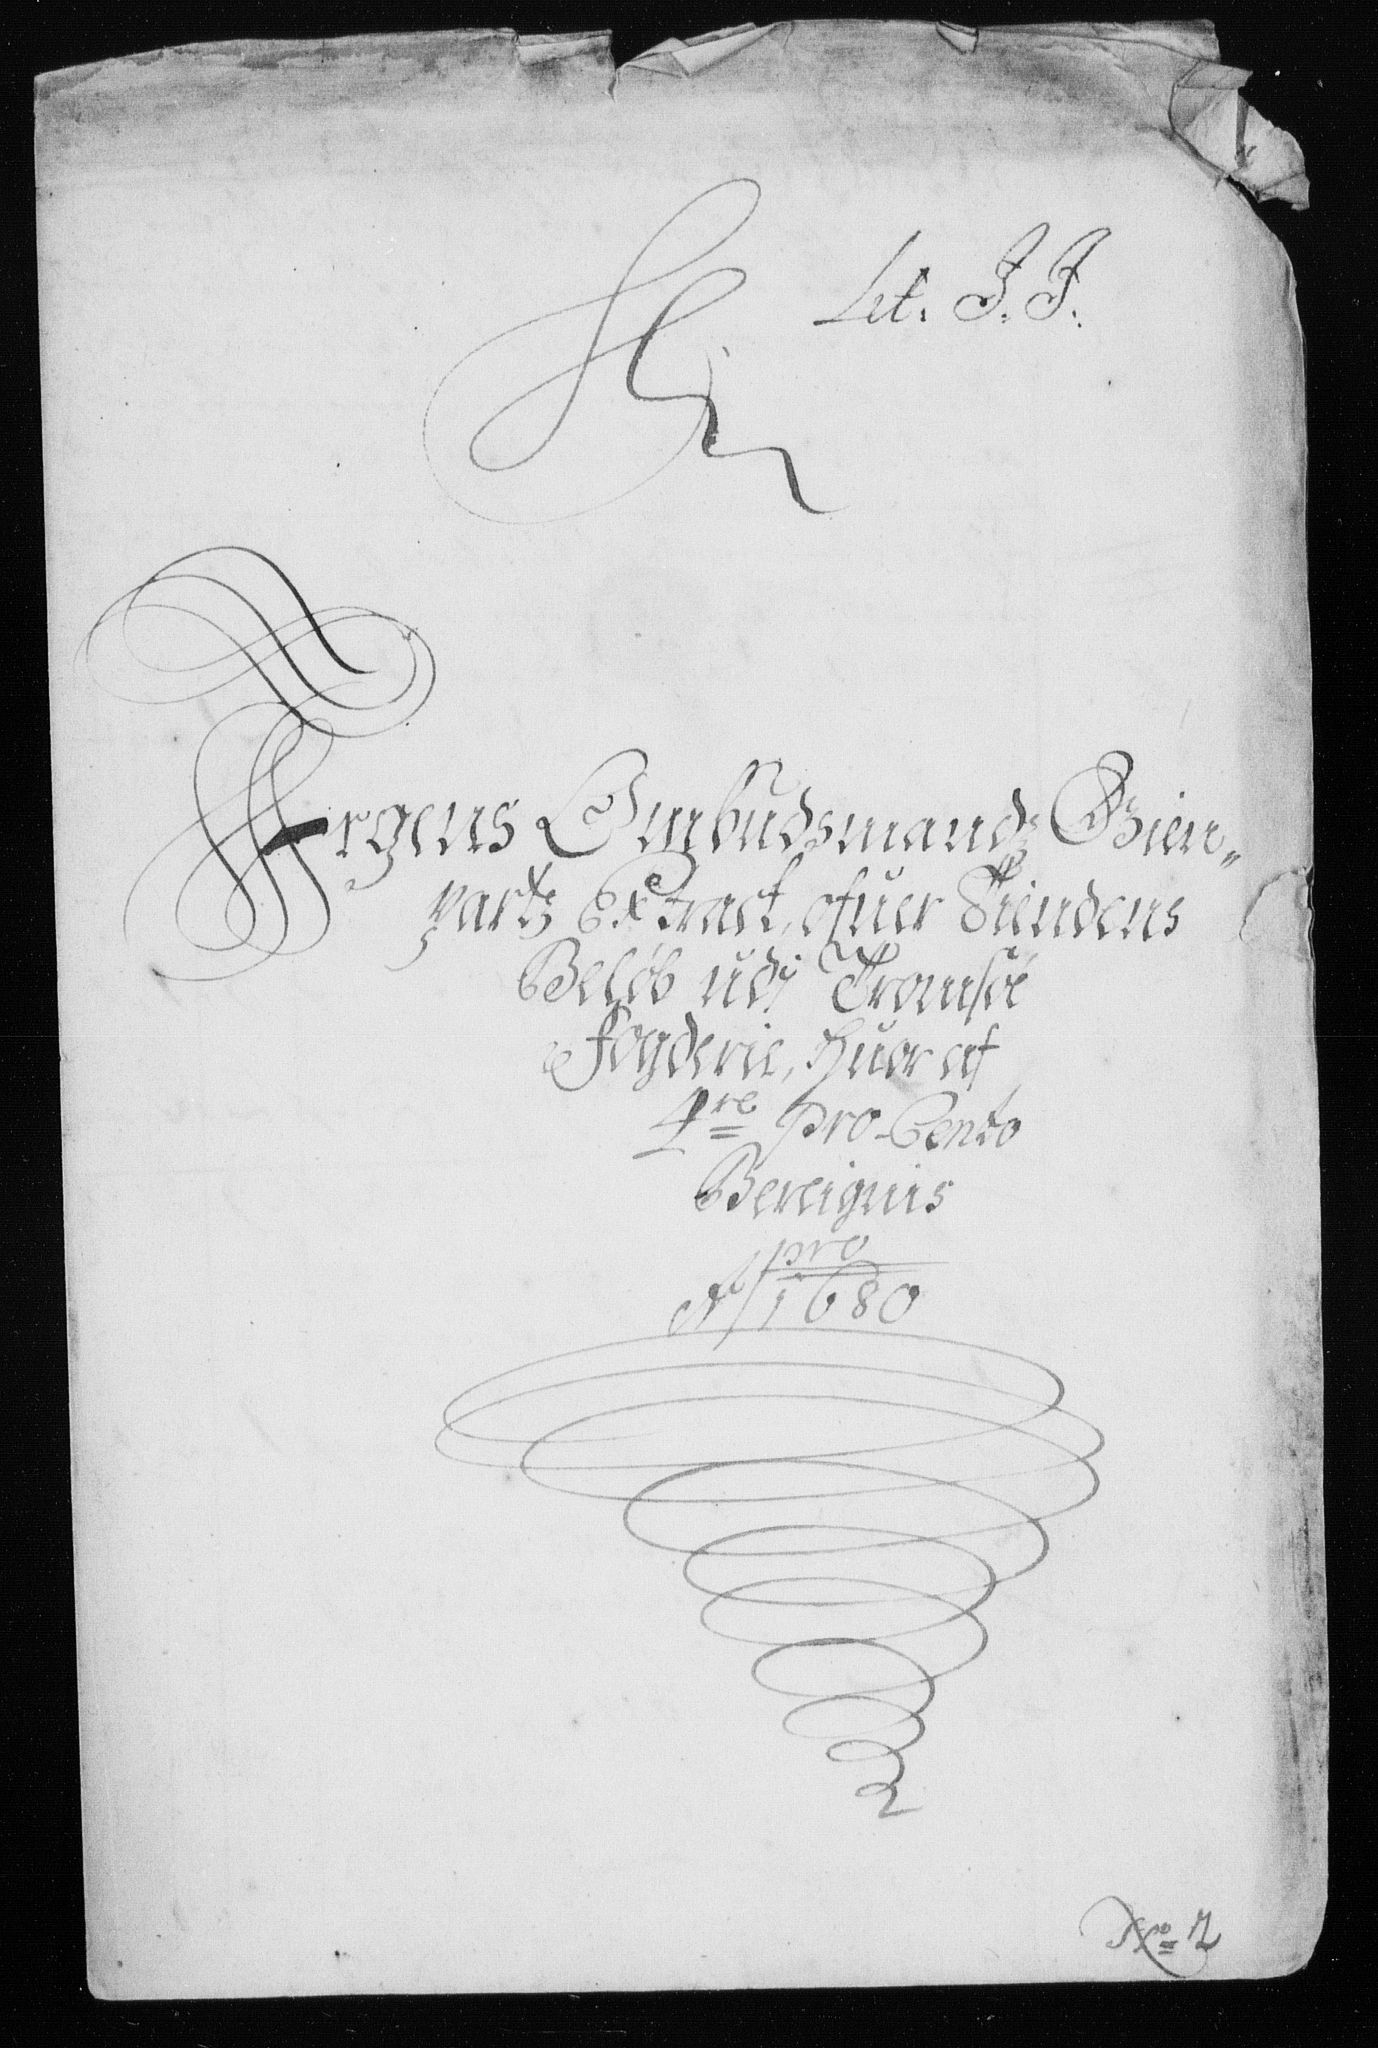 Lit. J. J.
Kirkens Ombudsmands Gien„
parts Extract, ofuer Tiendens
Beløb udj Tromsøe
Fogderie, huor af
4re pro Cento
Bereignis
pro
Ao 1680
No 2